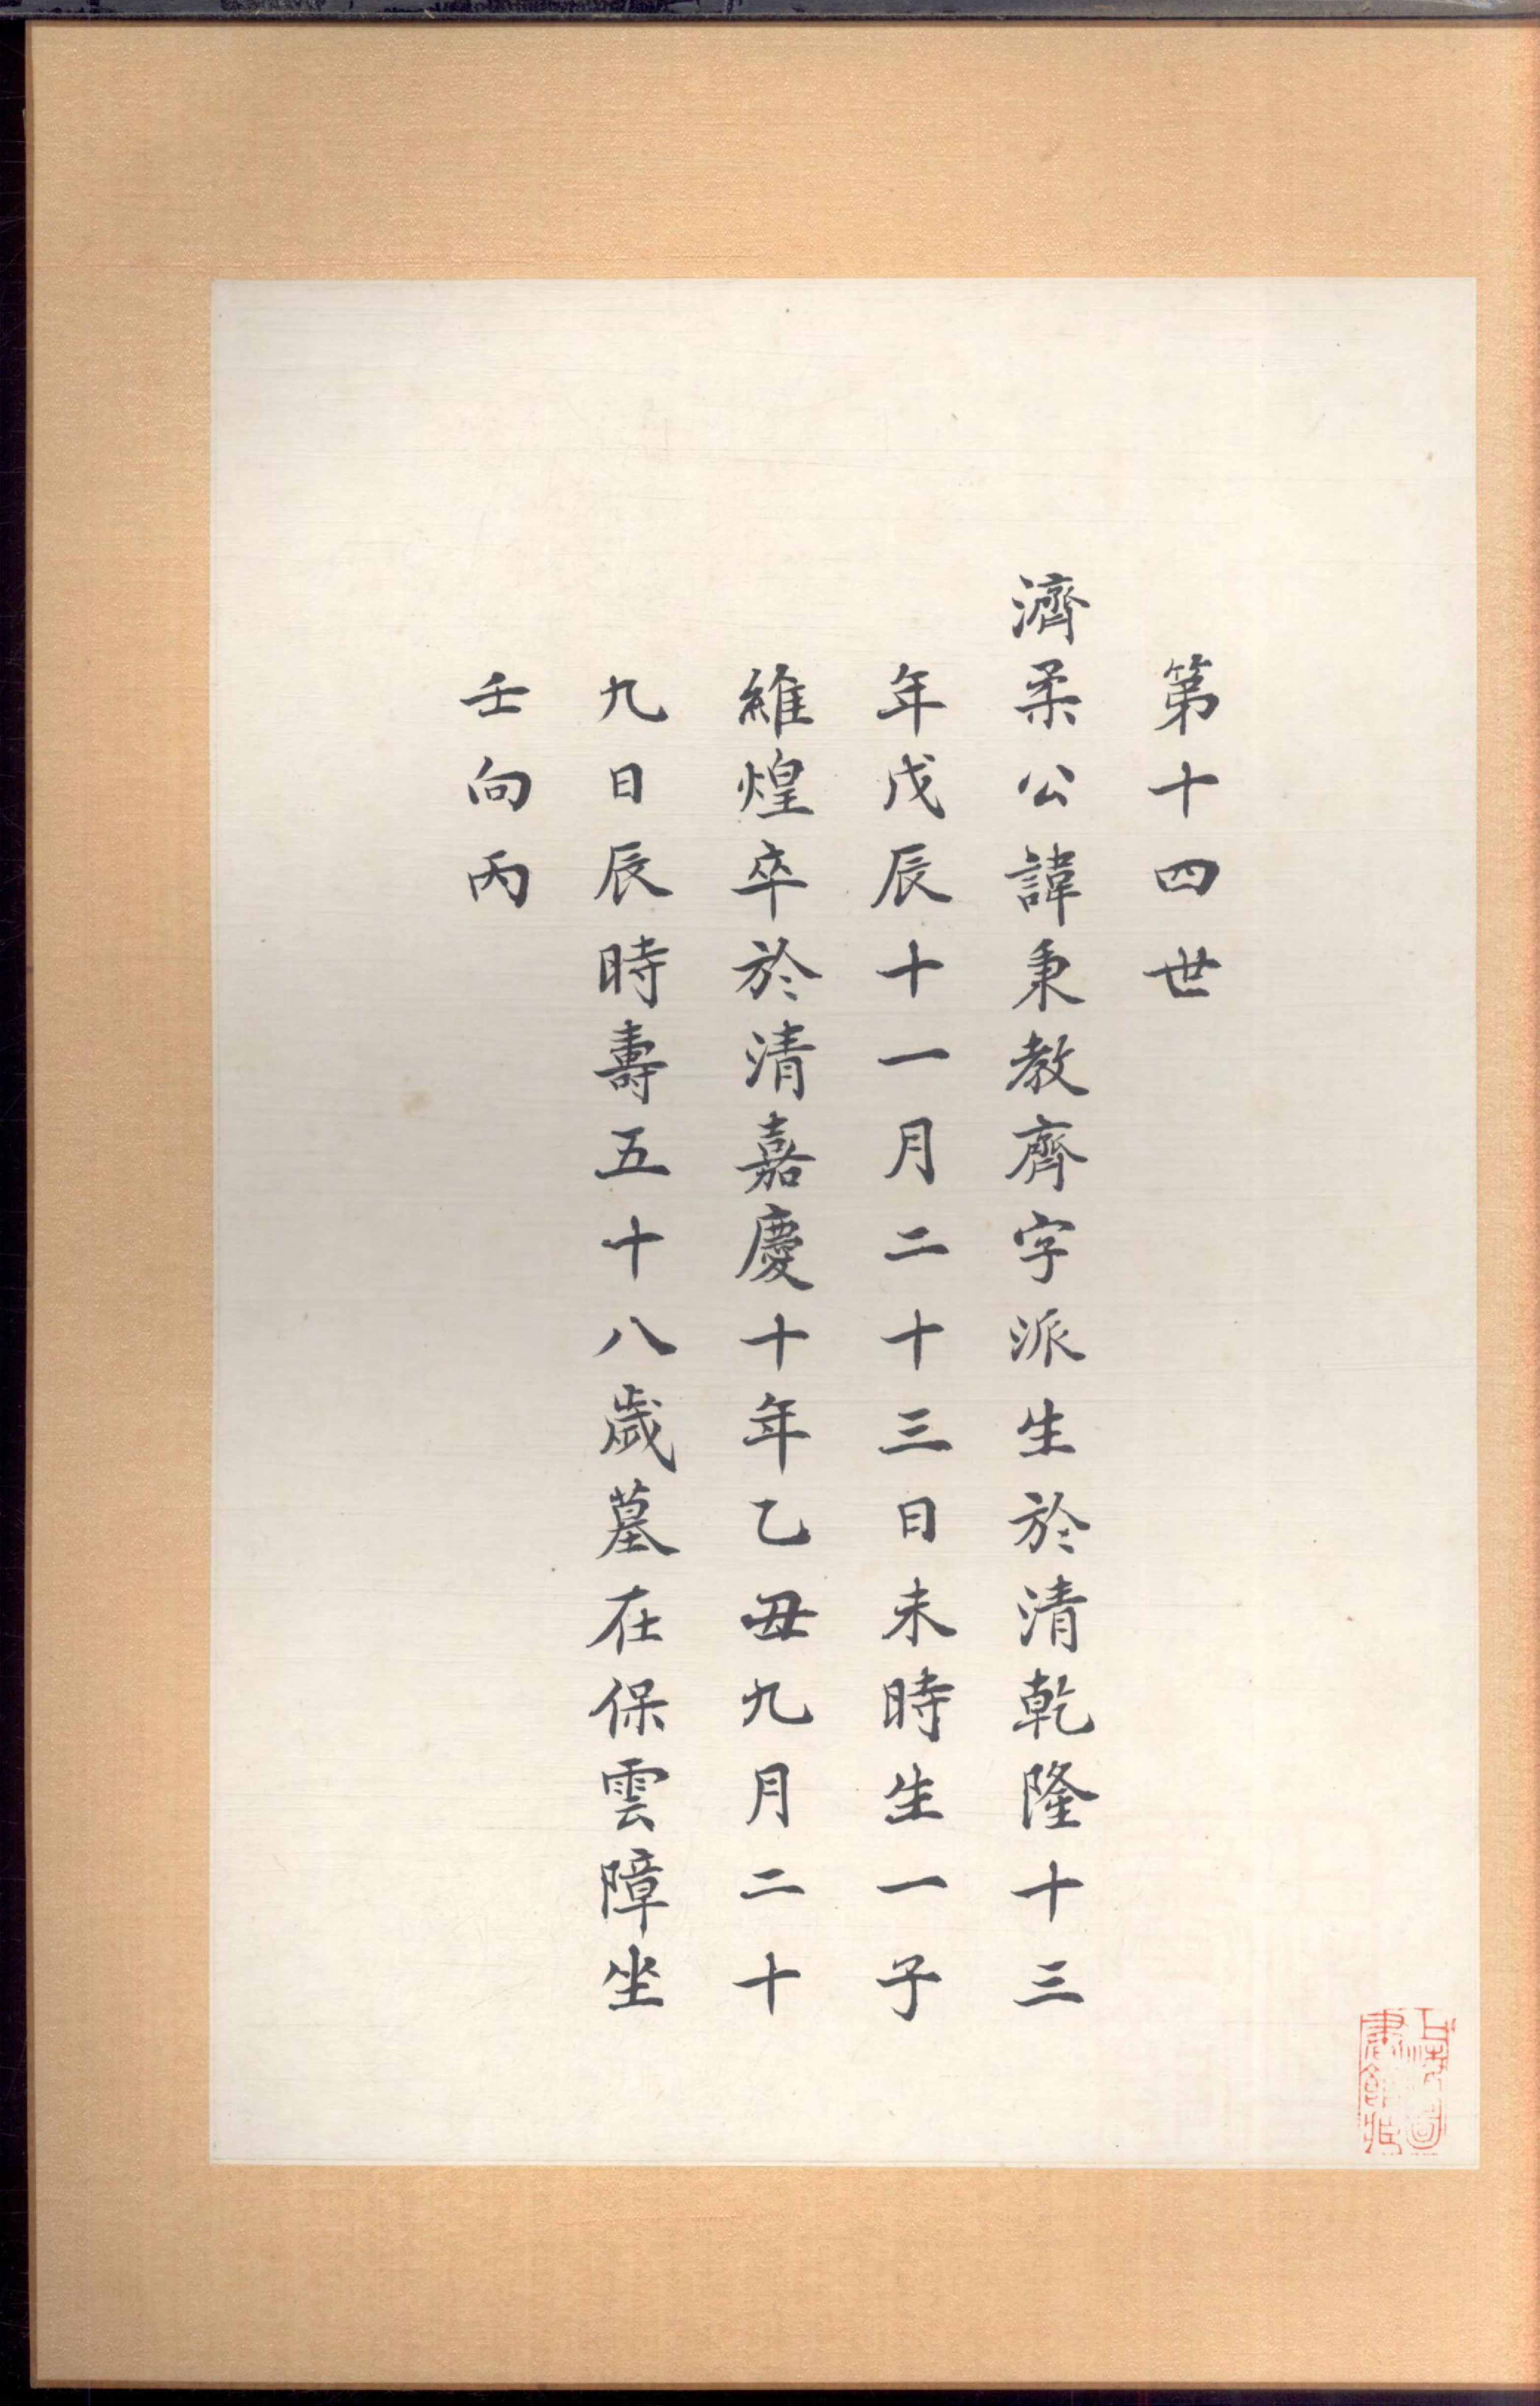 第十四世
濟柔公諱秉教齊字派生於清乾隆十三
年戊辰十一月二十三日未時生一子
維煌卒於清嘉慶十年乙丑九月二十
九日辰時壽五十八歲墓在保雲障坐
壬向丙